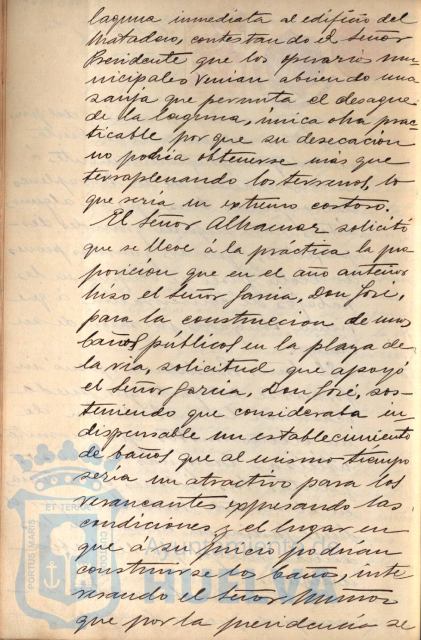 laguna inmediata al edificio del
Matadero, contestando el Señor
Presidente que los operarios mu-
nicipales venian abriendo una
zanja que permita el desague
de la laguna, única obra prac-
ticable por que su desecación
no podia obtenerse mas que
terraplenando los terrenos, lo
que seria en extremo costoso.
El Señor Alhamar solicitó
que se lleve á la práctica la pro
posición que en el año anterior
hizo el Señor Garcia, Don José,
para la construccion de unos
baños públicos en la playa de
la ria, solicitud que apoyó
el Señor Garcia, Don José, sos-
teniendo que consideraba in
dispensable un establecimiento
de baños que al mismo tiempo
seria un atractivo para los
veraneantes expresando las
condiciones y el lugar en
que a su juicio podrian
construirse los baños, inte
resando el Señor Muñoz
que por la presidencia se
PORTUS MARIS
ET TERRÆ
CUSTODIA
Ayuntamiento de
HUELVA